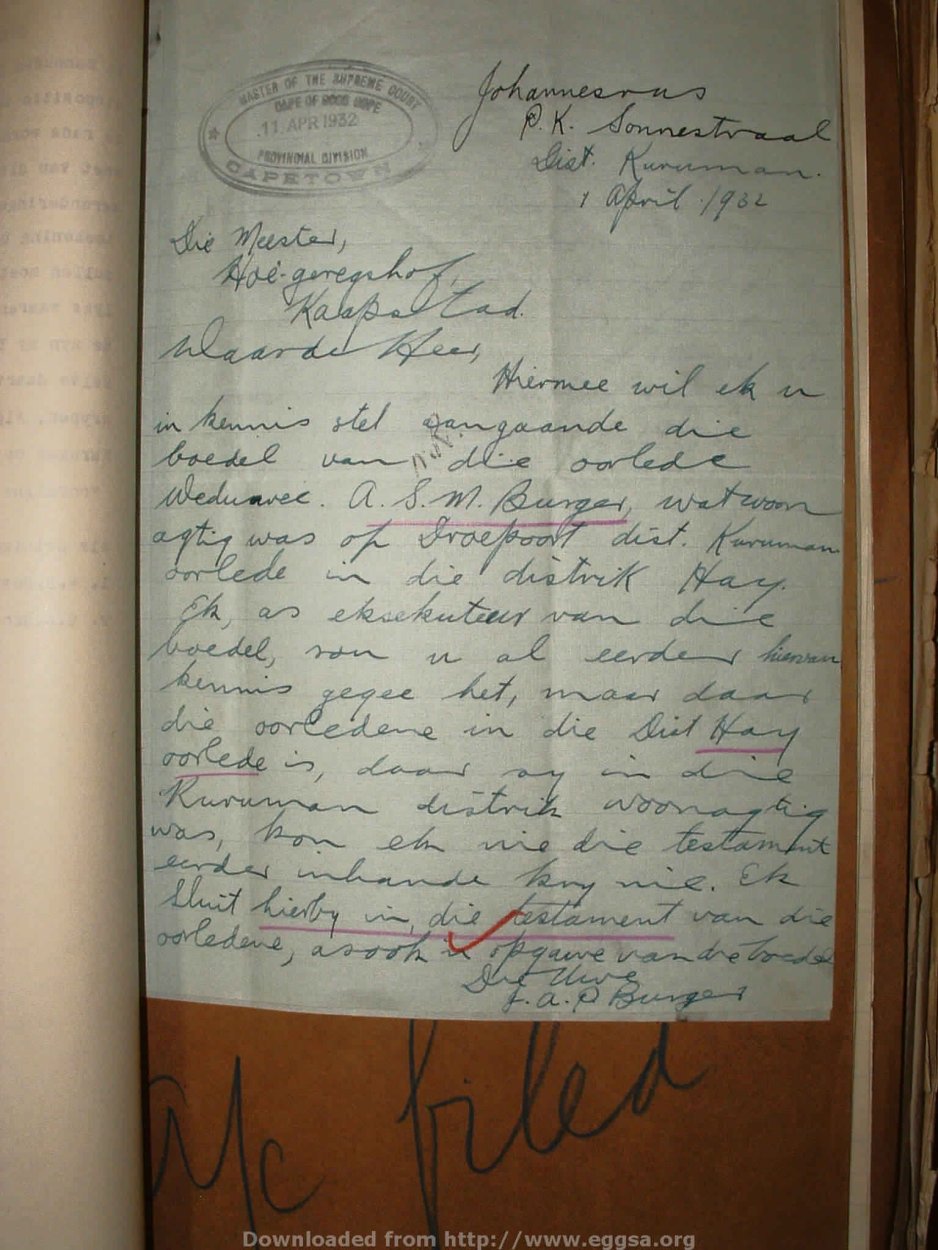 MASTER OF THE SUPREME COURT
CAPE OF GOOD HOPE
11 APR 1932
PROVINCIAL DIVISION
CAPETOWN
Johannesrus
P.K. Sonnestraal
Dist. Kuruman.
1 April 1932
Die Meester,
Hoë-geregshof,
Kaapstad.
Waarde Heer,
Hiermee wil ek u
in kennis stel aangaande die
boedel van die oorlede
Weduwee. A. S. M. Burger, wat woon
agtig was op Droepoort dist. Kuruman
oorlede in die distrik Hay.
Ek, as eksekuteur van die
boedel, sou u al eerder hiervan
kennis gegee het, maar daar
die oorledene in die Dist Hay
oorlede is, daar sy in die
Kuruman distrik woonagtig
was, kon ek nie die testament
eerder inhande kry nie. Ek
Sluit hierby in, die testament van die
oorledene, asook 'n opgawe van die boedel
Die Uwe
J. A. P Burger
filed
Downloaded from http://www.eggsa.org